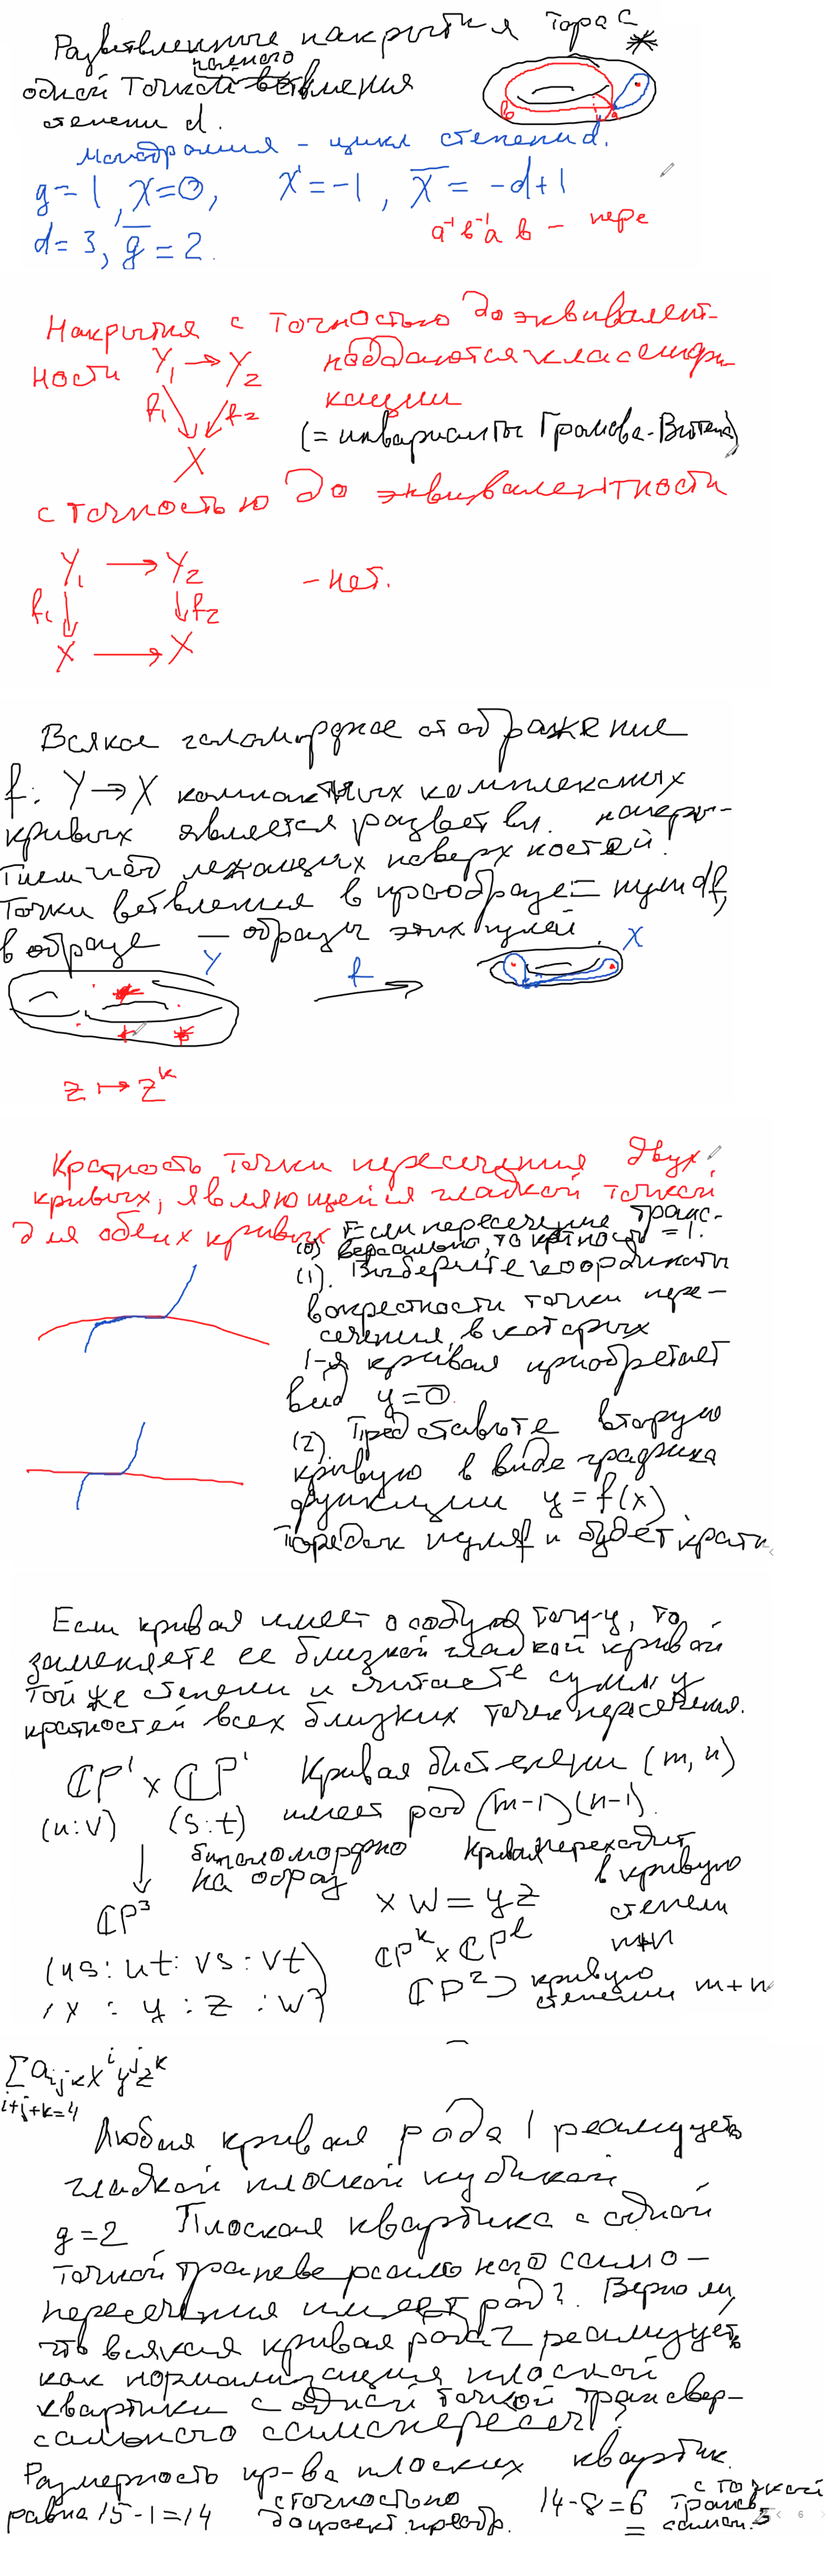 Разветвленные накрытия тора с
одной точкой полного ветвления
степени d.
Монодромия – цикл степени d.
g=1, χ=0, χ=-1, χ̅ = -d+1
d=3, g̅=2.
a⁻¹b⁻¹a b – пере
a
b
Накрытия с точностью до эквивалент-
ности Y₁ → Y₂ поддаются классифи-
f₁ f₂ кации
X (= инварианты Громова-Виттена)
с точностью до эквивалентности
Y₁ → Y₂
f₁ ↓ ↓ f₂ – нет.
X → X
Всякое голоморфное отображение
f: Y → X компактных комплексных
кривых является разветвл. накры-
тием над лежащих поверхностей.
Точки ветвления в прообразе = нули df,
в образе – образы этих нулей.
Y f X
z ↦ zᵏ
Кратность точки пересечения двух
кривых, являющейся гладкой точкой
для обеих кривых
(0) Если пересечение транс-
версально, то кратность = 1.
(1). Выберите координаты
в окрестности точки пере-
сечения, в которых
1-я кривая приобретает
вид y=0.
(2). Представьте вторую
кривую в виде графика
функции y=f(x)
Порядок нуля f и будет кратн
Если кривая имеет особую точку, то
заменяете ее близкой гладкой кривой
той же степени и считаете сумму
кратностей всех близких точек пересечения.
ℂP¹ × ℂP¹ Кривая бистепени (m,n)
(u:v) (s:t) имеет род (m-1)(n-1).
↓ биголоморфно Кривая переходит
на образ в кривую
ℂP³ xw = yz степени
m+n
(us : ut : vs : vt) ℂPᵏ × ℂPˡ
(x : y : z : w) ℂP² ⊃ кривую
степени m+n
∑ aᵢⱼₖ xⁱ yʲ zᵏ
i+j+k=4
Любая кривая рода 1 реализуется
гладкой плоской кубикой
g=2 Плоская квартика с одной
точкой трансверсального само-
пересечения имеет род 2. Верно ли,
что всякая кривая рода 2 реализуется
как нормализация плоской
квартики с одной точкой трансвер-
сального самопересеч?
Размерность пр-ва плоских квартик
равна 15-1=14 с точностью
до проект. преобр. 14-8=6
с точкой
трансв.
самоп. = 5
6